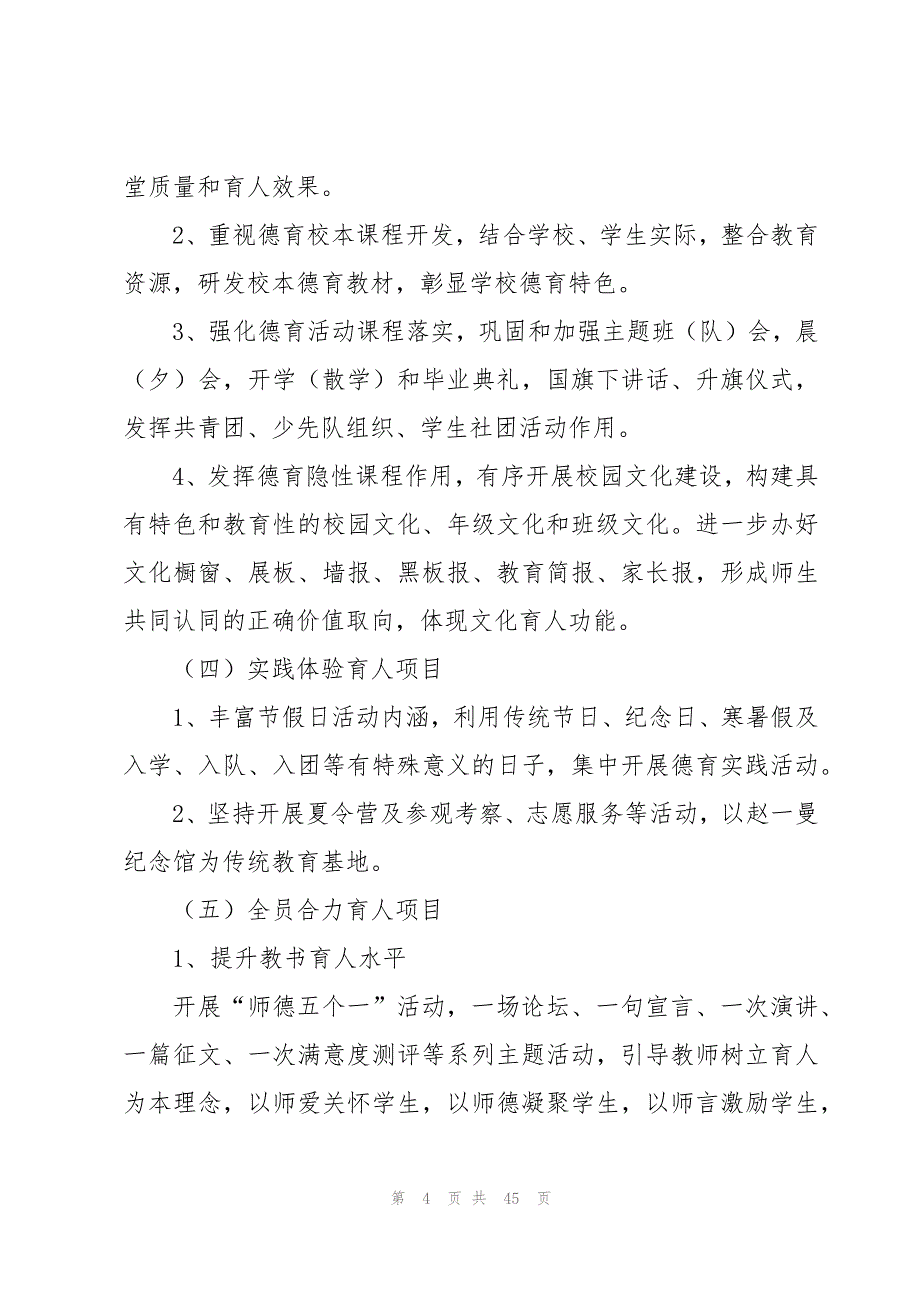 堂质量和育人效果。
2、重视德育校本课程开发，结合学校、学生实际，整合教育
资源，研发校本德育教材，彰显学校德育特色。
3、强化德育活动课程落实，巩固和加强主题班（队）会，晨
（夕）会，开学（散学）和毕业典礼，国旗下讲话、升旗仪式，
发挥共青团、少先队组织、学生社团活动作用。
4、发挥德育隐性课程作用，有序开展校园文化建设，构建具
有特色和教育性的校园文化、年级文化和班级文化。进一步办好
文化橱窗、展板、墙报、黑板报、教育简报、家长报，形成师生
共同认同的正确价值取向，体现文化育人功能。
（四）实践体验育人项目
1、丰富节假日活动内涵，利用传统节日、纪念日、寒暑假及
入学、入队、入团等有特殊意义的日子，集中开展德育实践活动。
2、坚持开展夏令营及参观考察、志愿服务等活动，以赵一曼
纪念馆为传统教育基地。
（五）全员合力育人项目
1、提升教书育人水平
开展“师德五个一”活动，一场论坛、一句宣言、一次演讲、
一篇征文、一次满意度测评等系列主题活动，引导教师树立育人
为本理念，以师爱关怀学生，以师德凝聚学生，以师言激励学生，
第 4 页 共 45 页